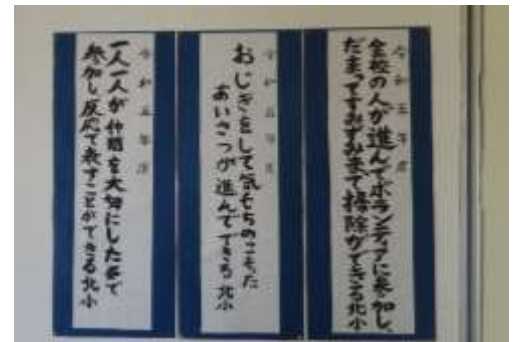 令和五年度
全校の人が進んでボランティアに参加し、
だまってすみずみまで掃除ができる北小
令和五年度
おじぎをして気もちのこもった
あいさつが進んでできる 北小
令和五年度
一人一人が仲間を大切にした姿で
参加し反応で表すことができる北小